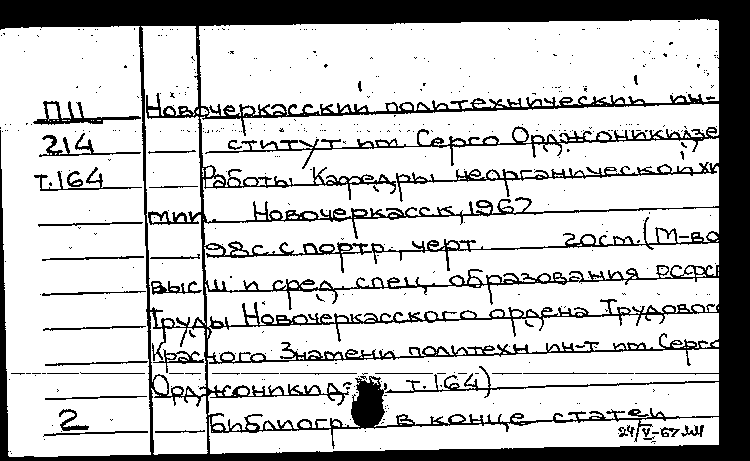 П11 Новочеркасский политехнический ин-
214 ститут им. Серго Орджоникидзе
т.164 Работы Кафедры неорганической хи
мии. Новочеркасск, 1967
98с. с портр., черт. 20см. (М-во
высш и сред. спец. образования РСФСР
Труды Новочеркасского ордена Трудового
Красного Знамени политехн ин-т им. Серго
Орджоникидзе, т.164)
2 Библиогр. в конце статей
24/V-67